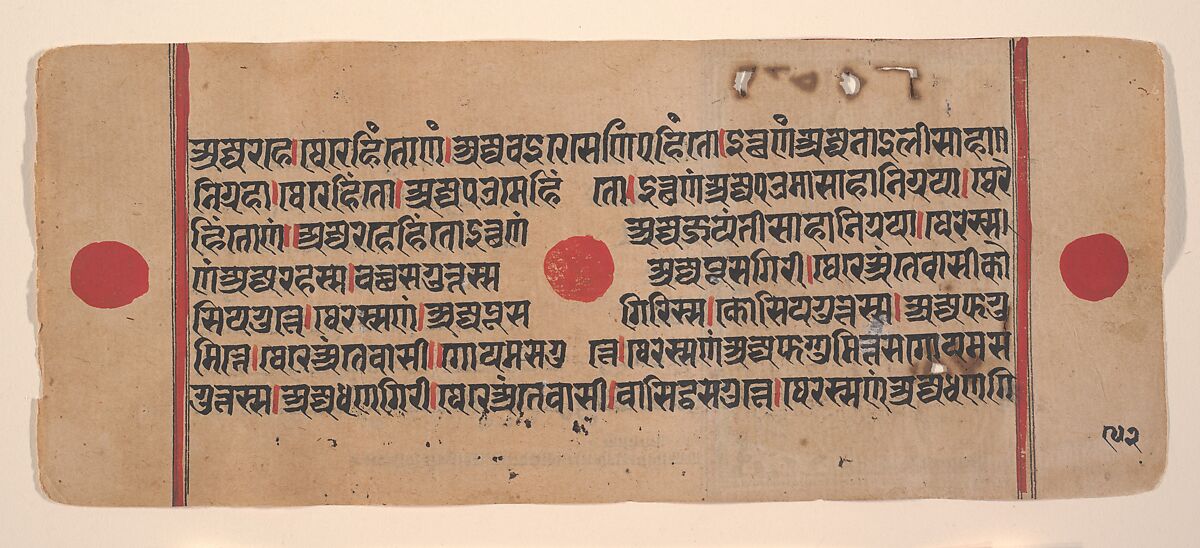 अज्जरहे।थेरेहिंतोणं।अज्जवइरसेणिएहिंतो।इत्थणंअज्जनाइलीसाहाण
निग्गया।थेरेहिंतो।अज्जपउमेहिं तो।इत्थणंअज्जपउमासाहानिग्गया।थेरे
हिंतोणं॥अज्जरहेहिंतोइत्थणं अज्जजयंतीसाहानिग्गया।थेरस्स।
णंअज्जरहस्स।वच्छसगुत्तस्स अज्जपूसगिरी।थेरेअंतेवासीको
सियगुत्ते।थेरस्सणं।अज्जपूस गिरिस्स।कोसियगुत्तस्स।अज्जफग्गु
मित्ते।थेरेअंतेवासी॥गोयमसगु त्ते।थेरस्सणंअज्जफग्गुमित्तसगोयमस
गुत्तस्स।अज्जधणगिरी।थेरेअंतेवासी।वासिट्ठसगुत्ते।थेरस्सणंअज्जधणगि